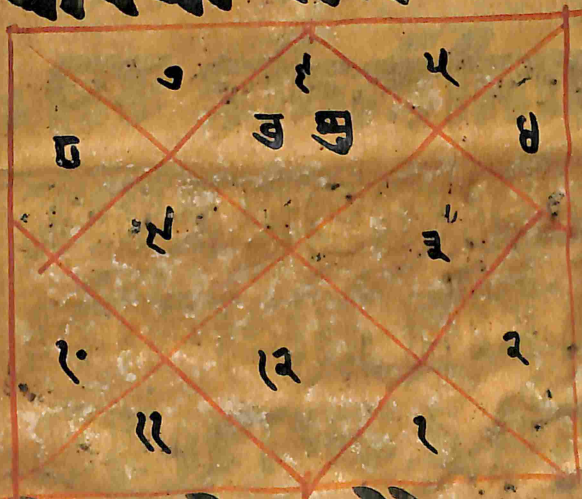 ७ ६ ५
८ ४
९ ३
१० १२ २
११ १